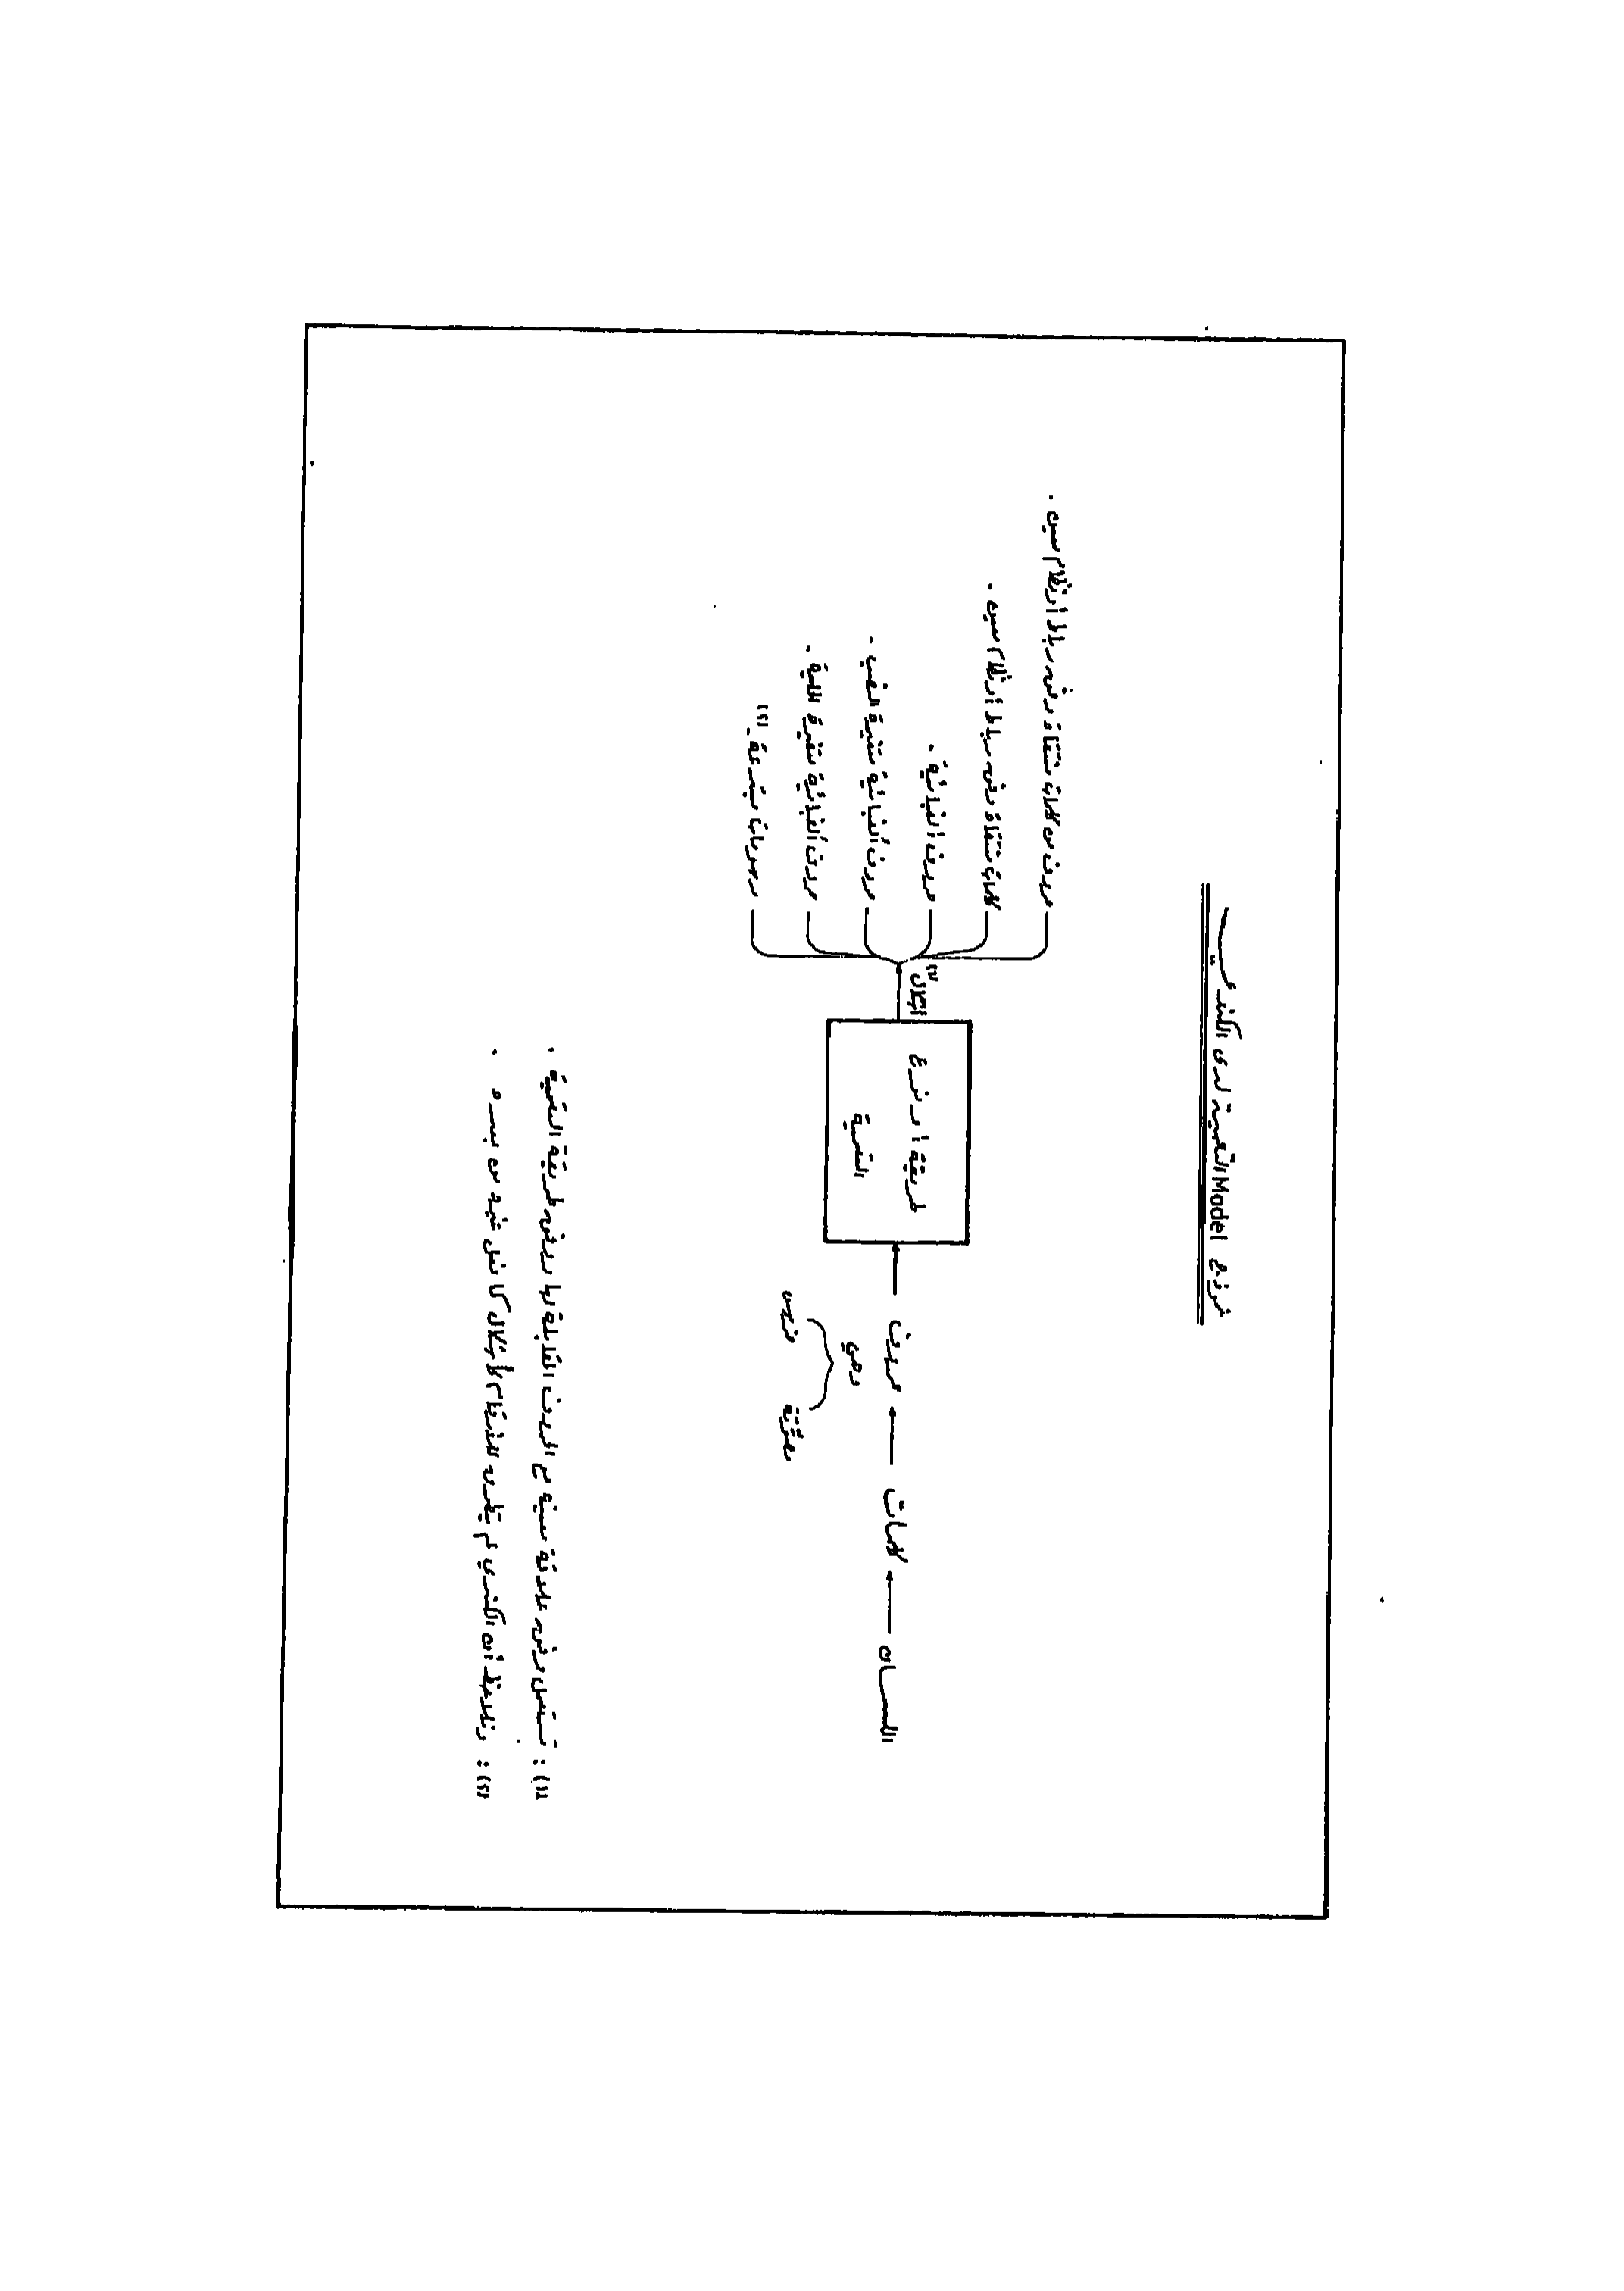 نموذج Model التعمية لدى الكندي
اللسان
كلمات
حروف
وهي
مصوّتة
خرس
طريقة أو نوع
التعمية
أشكال (١)
حروف من كلمات منتقاة وفق رباط أو نظام معين .
كلمات منتقاة وفق رباط أو نظام معين .
حروف ألفبائية .
حروف ألفبائية متغيرة النصب .
حروف ألفبائية متغيرة الحلية .
رسومات مبتدعة . (٢)
(١) : تستعمل وفق علاقة معينة مع الحروف المقابلة لها ووفق طريقة التعمية .
(٢) : ونلاحظ أن الكندي لم يتطرق للأرقام كأشكال كما فعل غيره من بعده .